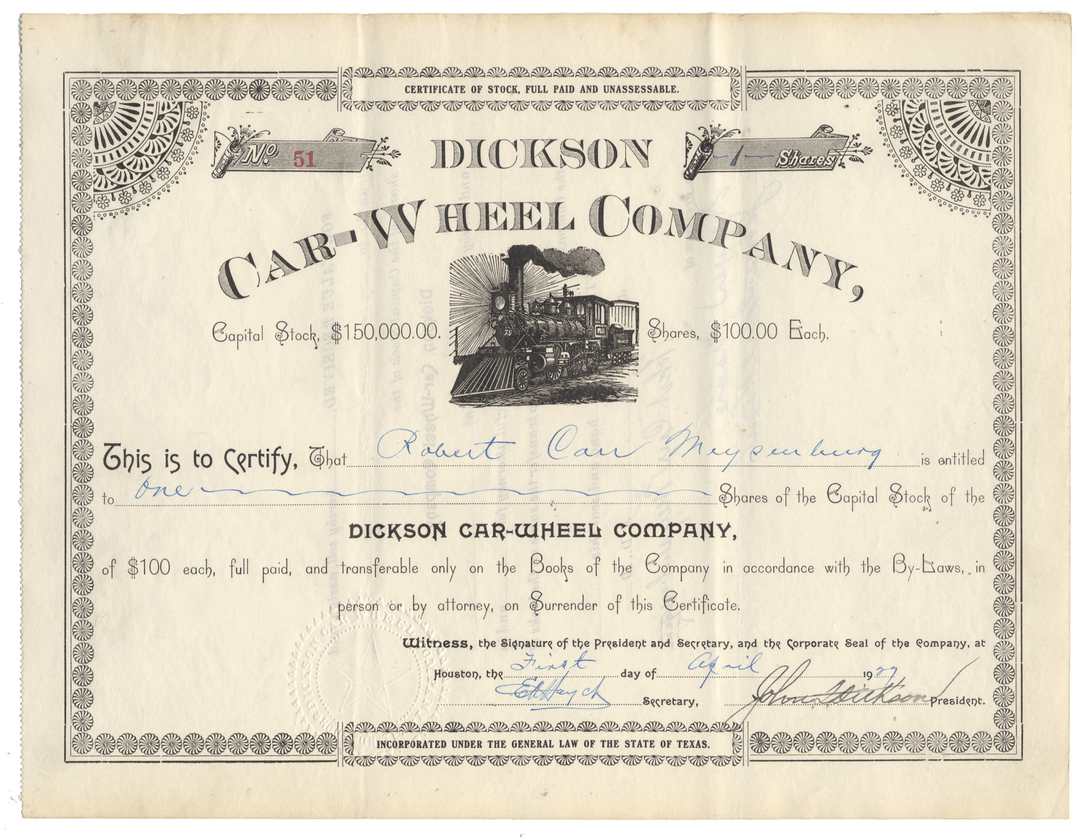 CERTIFICATE OF STOCK, FULL PAID AND UNASSESSABLE.
No. 51
DICKSON
1 Shares
CAR-WHEEL COMPANY,
Capital Stock, $150,000.00.
Shares, $100.00 Each.
This is to Certify, That Robert Carr Meysenburg is entitled
to one Shares of the Capital Stock of the
DICKSON CAR-WHEEL COMPANY,
of $100 each, full paid, and transferable only on the Books of the Company in accordance with the By-Laws, in
person or by attorney, on Surrender of this Certificate.
Witness, the Signature of the President and Secretary, and the Corporate Seal of the Company, at
Houston, the First day of April 1927
Secretary, John F Dickson President.
INCORPORATED UNDER THE GENERAL LAW OF THE STATE OF TEXAS.